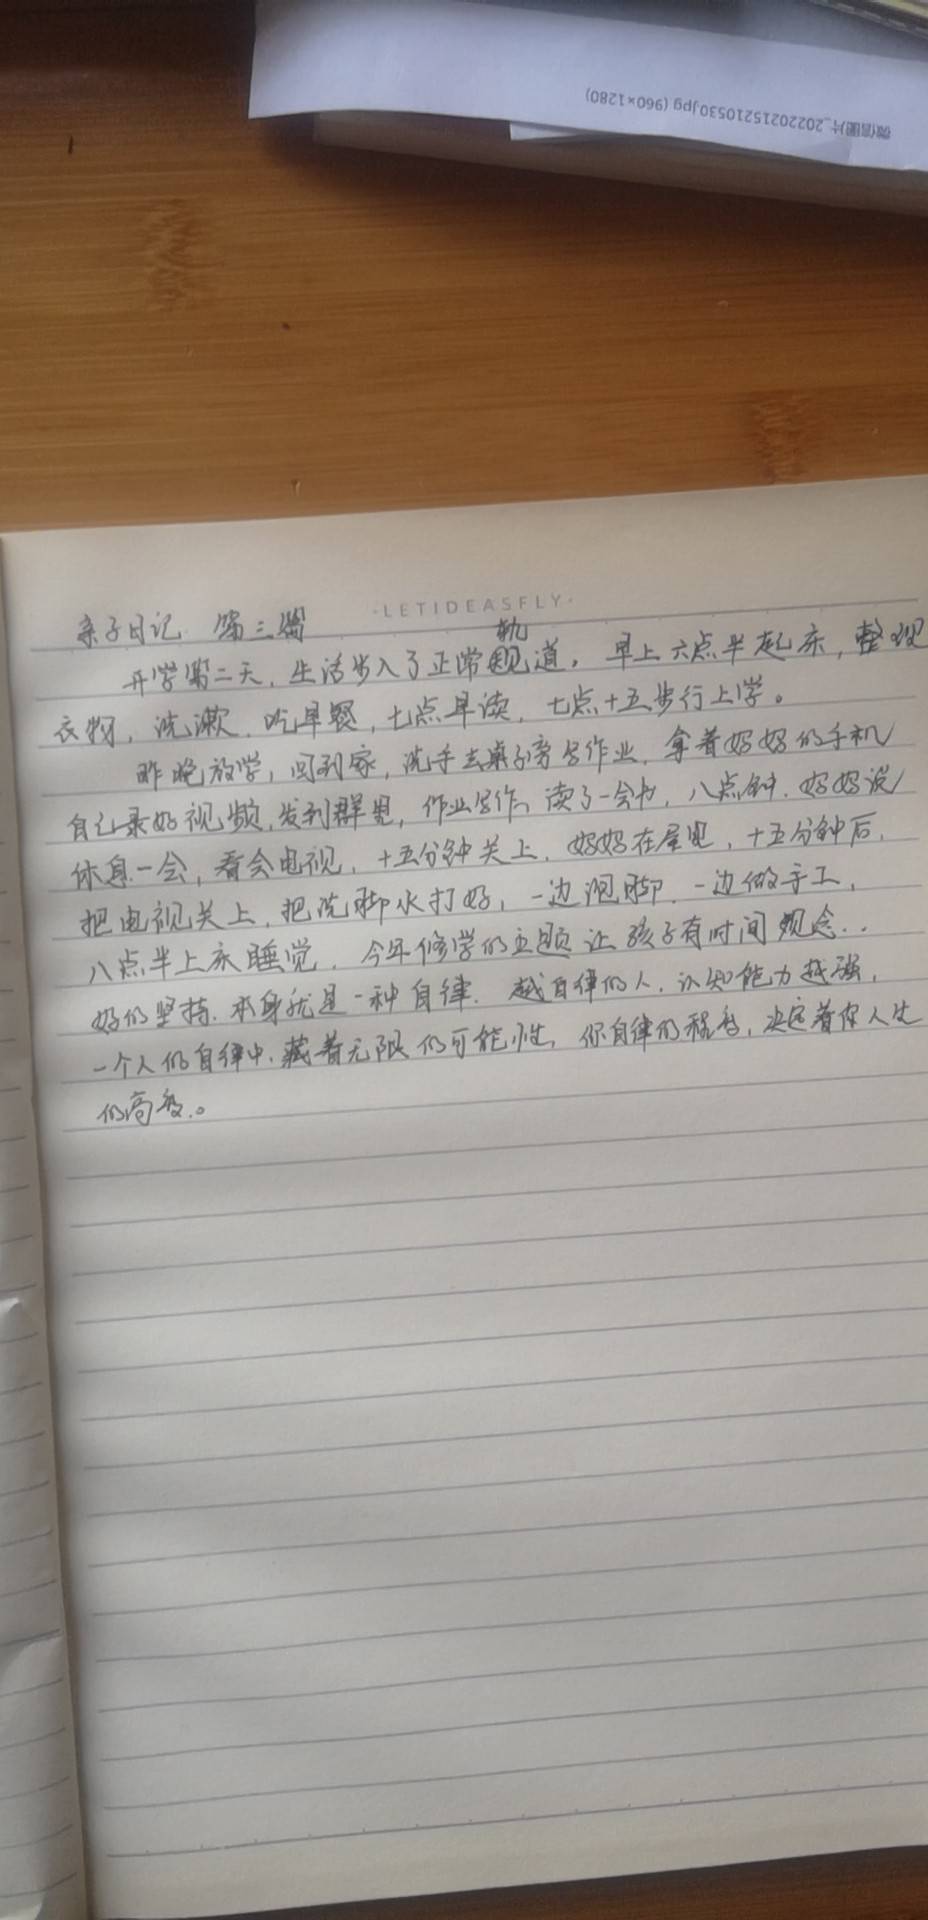 微信图片_20220215210530.jpg (960×1280)
·LETIDEASFLY·
亲子日记 第三篇
开学第二天，生活步入了正常轨道，早上六点半起床，整理
衣物，洗漱，吃早餐，七点早读，七点十五步行上学。
昨晚放学，回到家，洗手去桌子旁写作业，拿着妈妈的手机
自己录好视频，发到群里，作业写作，读了一会书，八点钟，妈妈说
休息一会，看会电视，十五分钟关上，妈妈在屋里，十五分钟后，
把电视关上，把洗脚水打好，一边泡脚，一边做手工，
八点半上床睡觉，今年修学的主题让孩子有时间观念..
好的坚持，本身就是一种自律，越自律的人，认知能力越强，
一个人的自律中，藏着无限的可能性，你自律的程度，决定着你人生
的高度。